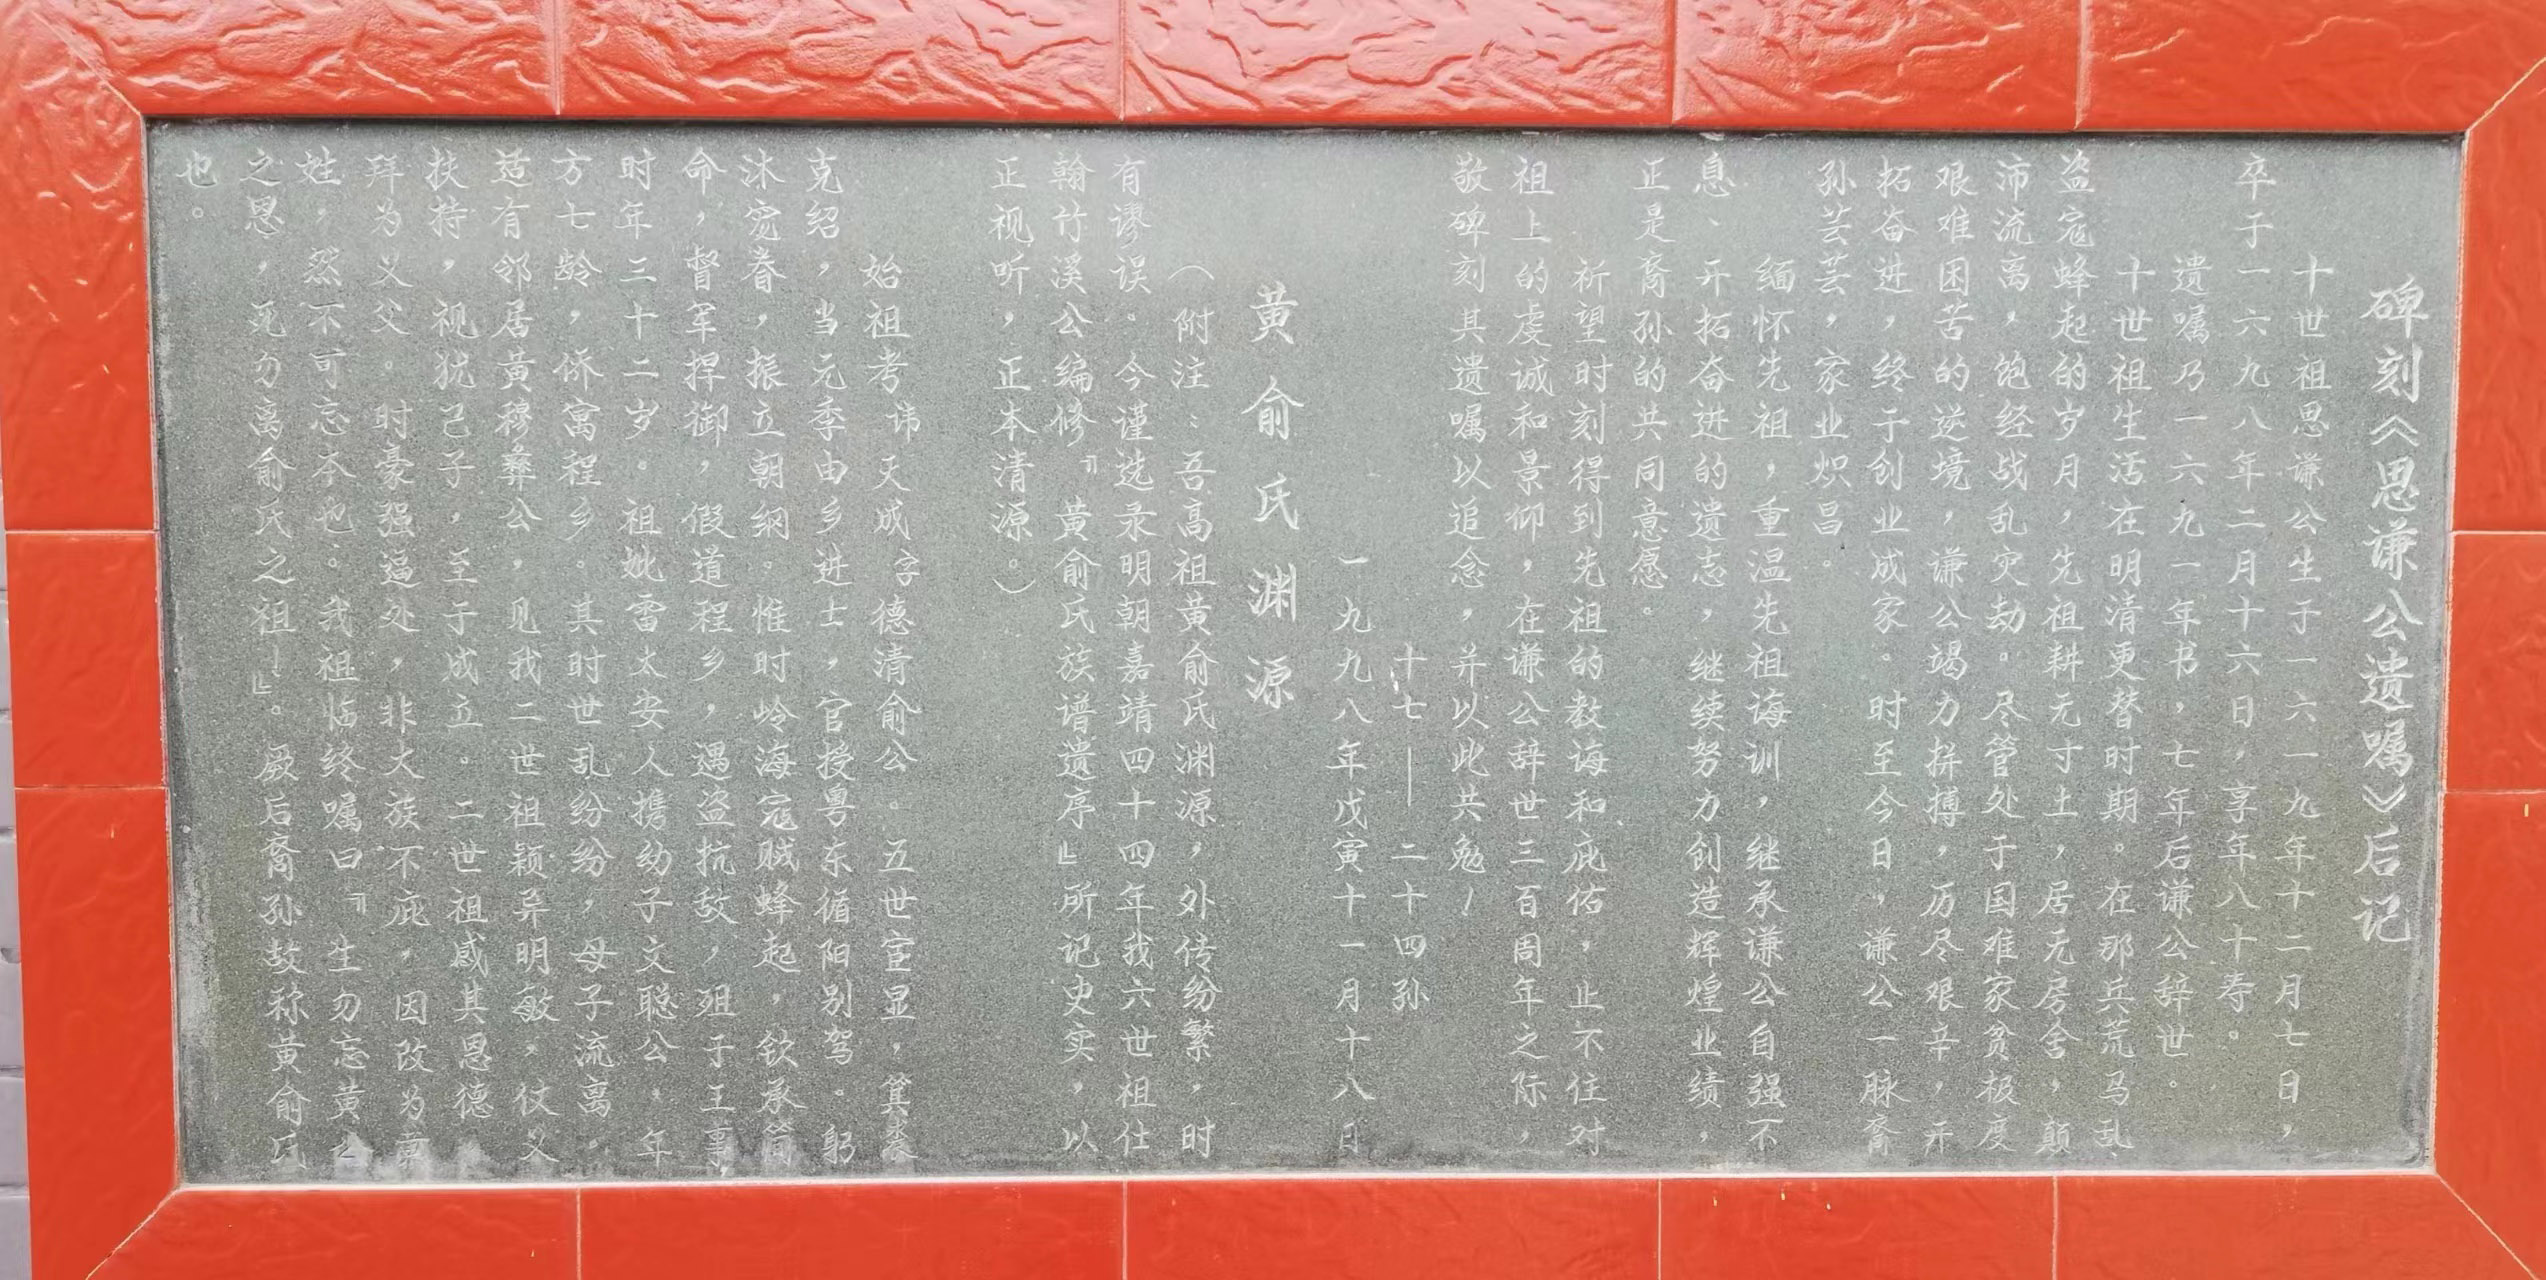 碑刻《思谦公遗嘱》后记
十世祖思谦公生于一六一九年十二月七日，
卒于一六九八年二月十六日，享年八十寿。
遗嘱乃一六九一年书，七年后谦公辞世。
十世祖生活在明清更替时期。在那兵荒马乱
盗寇蜂起的岁月，先祖耕无寸土，居无房舍，颠
沛流离，饱经战乱灾劫。尽管处于国难家贫极度
艰难困苦的逆境，谦公竭力拼搏，历尽艰辛，开
拓奋进，终于创业成家。时至今日，谦公一脉裔
孙芸芸，家业炽昌。
缅怀先祖，重温先祖诲训，继承谦公自强不
息、开拓奋进的遗志，继续努力创造辉煌业绩，
正是裔孙的共同意愿。
祈望时刻得到先祖的教诲和庇佑，止不住对
祖上的虔诚和景仰，在谦公辞世三百周年之际，
敬碑刻其遗嘱以追念，并以此共勉！
十七——二十四孙
一九九八年戊寅十一月十八日
黄俞氏渊源
（附注：吾高祖黄俞氏渊源，外传纷繁，时
有谬误。今谨选录明朝嘉靖四十四年我六世祖仕
翰竹溪公编修『黄俞氏族谱遗序』所记史实，以
正视听，正本清源。）
始祖考讳天成字德清俞公。五世宦显，箕裘
克绍，当元季由乡进士，官授粤东循阳别驾。躬
沐宠眷，振立朝纲。惟时岭海寇贼蜂起，钦承简
命，督军捍御，假道程乡，遇盗抗敌，殂于王事，
时年三十二岁。祖妣雷太安人携幼子文聪公，年
方七龄，侨寓程乡。其时世乱纷纷，母子流离。
适有邻居黄穆彝公，见我二世祖颖异明敏，仗义
扶持，视犹己子，至于成立。二世祖感其恩德
拜为义父。时豪强逼处，非大族不庇，因改为黄
姓，然不可忘本也。我祖临终嘱曰『生勿忘黄氏
之恩，死勿离俞氏之祖！』。厥后裔孙故称黄俞氏
也。